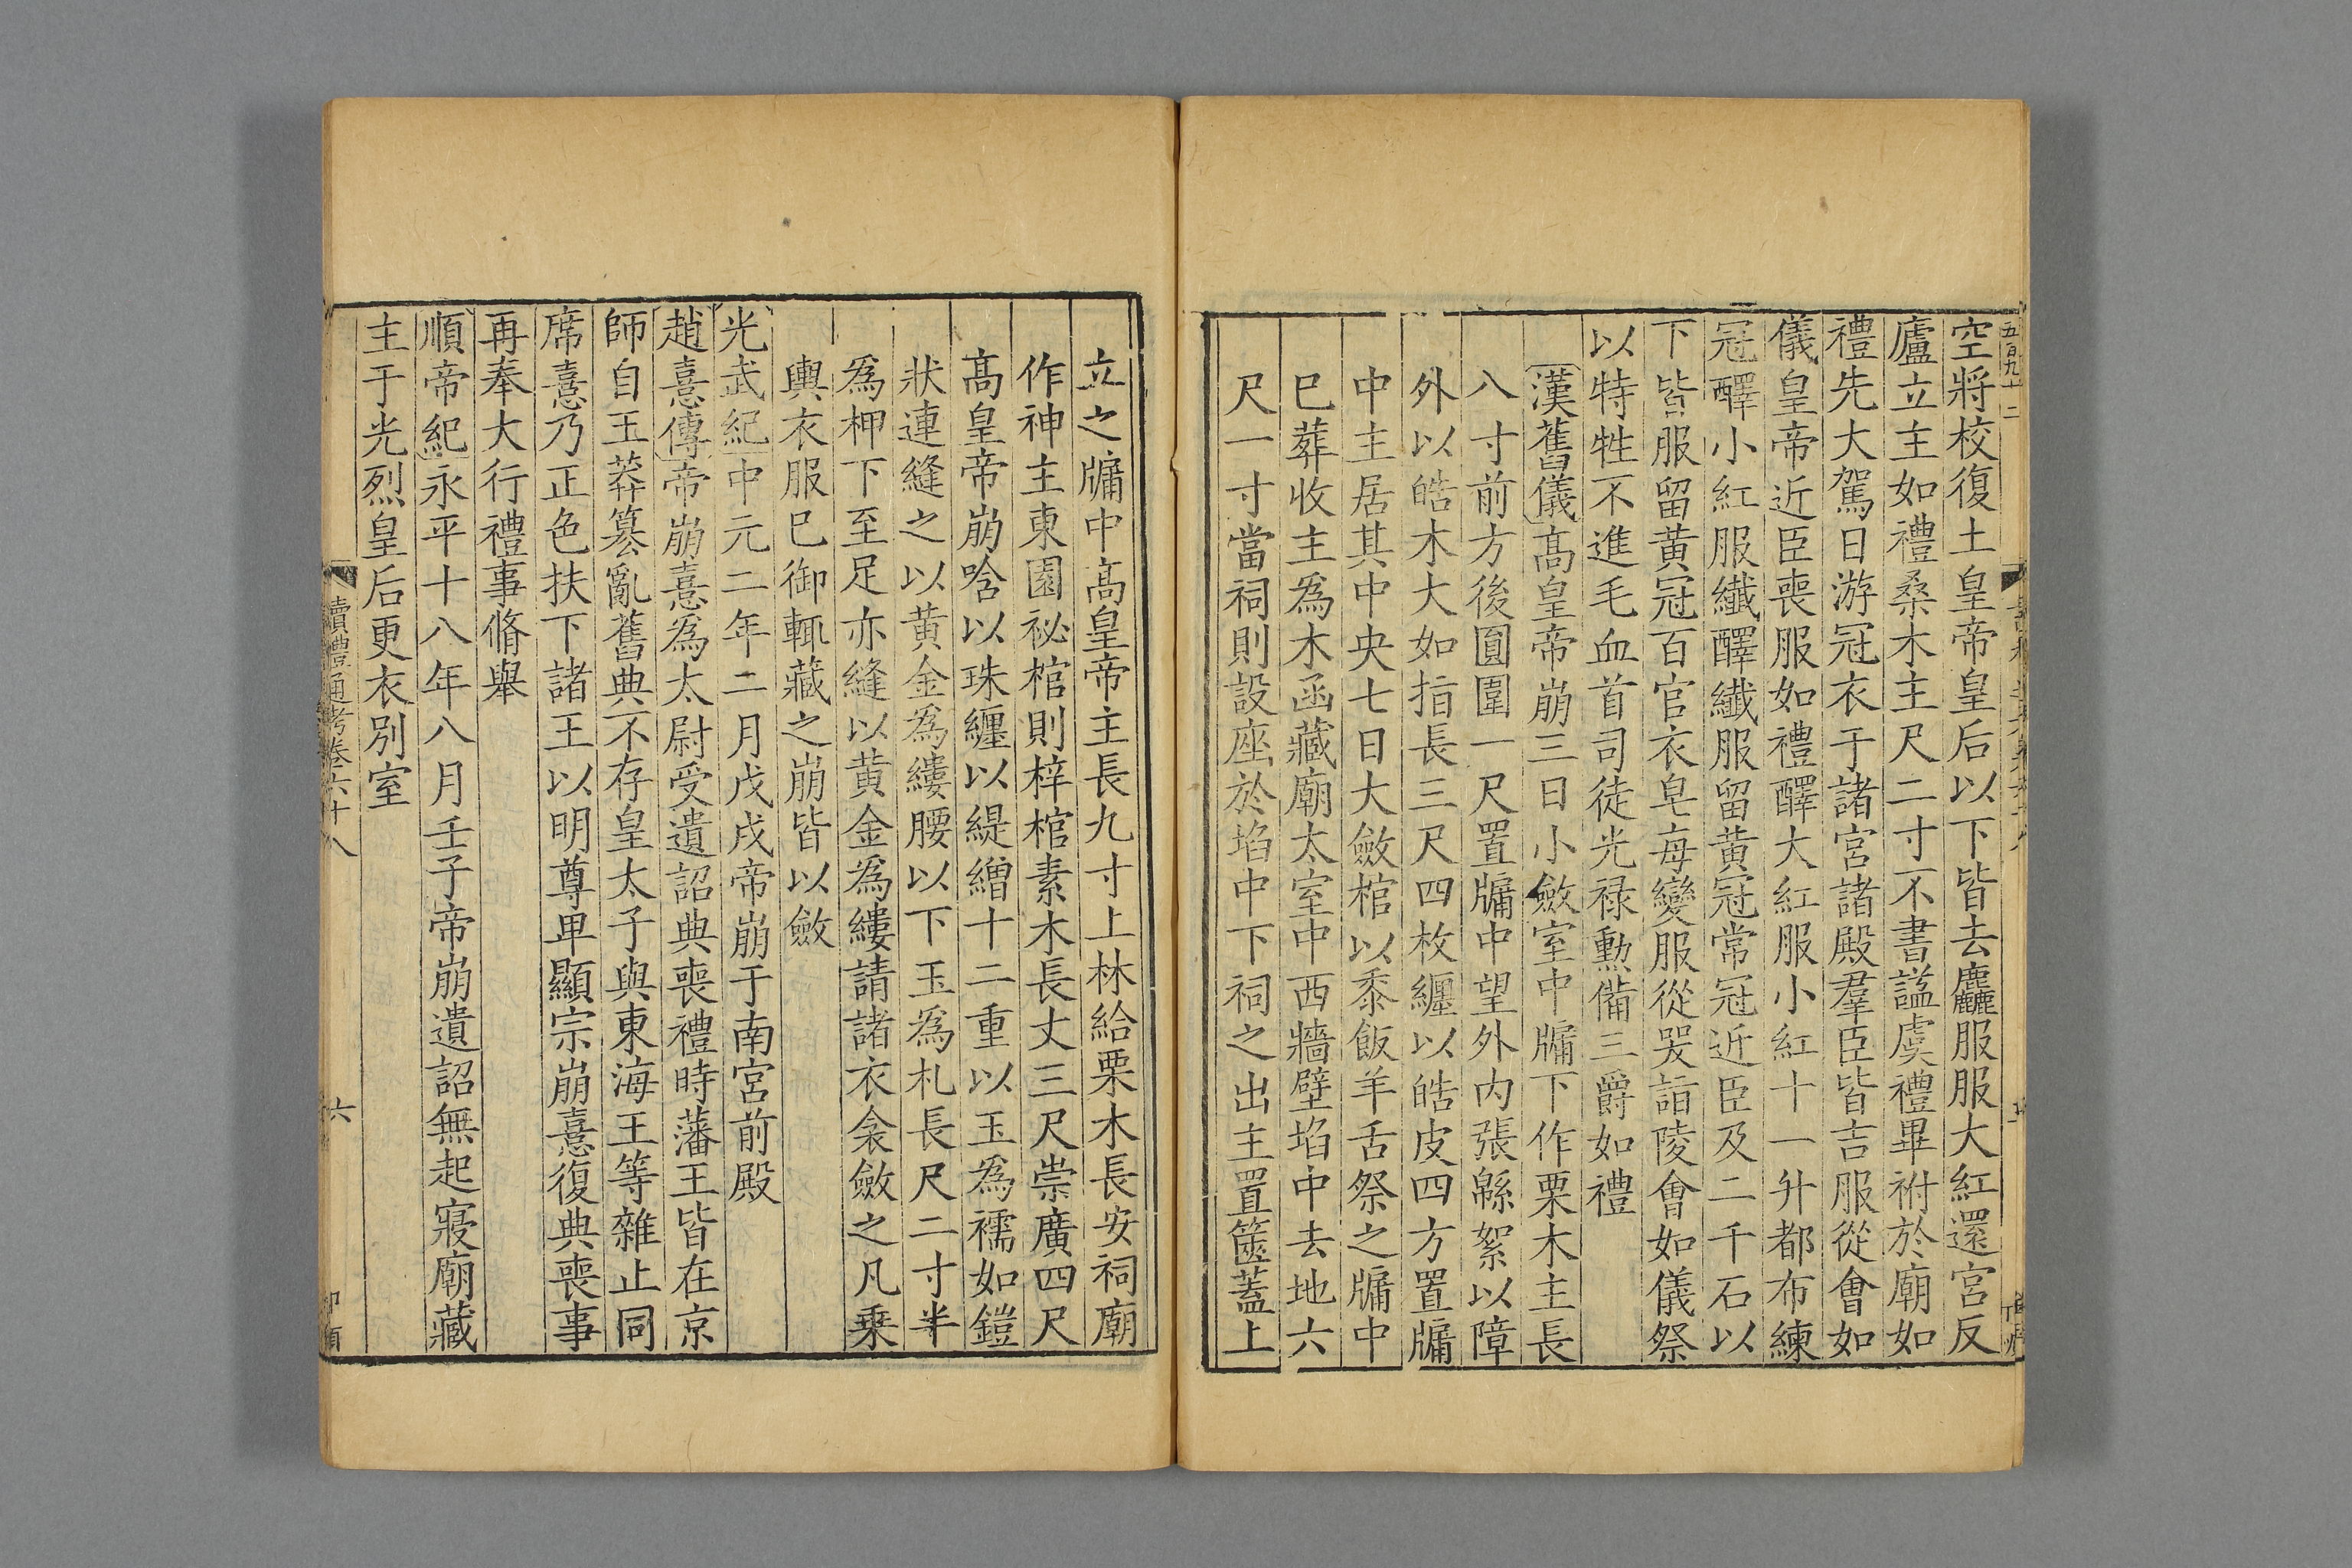 五百九十二
空將校復土皇帝皇后以下皆去麤服服大紅還宮反
廬立主如禮桑木主尺二寸不書諡虞禮畢祔於廟如
禮先大駕日游冠衣于諸宮諸殿羣臣皆吉服從會如
儀皇帝近臣喪服如禮醳大紅服小紅十一升都布練
冠醳小紅服纖醳纖服留黃冠常冠近臣及二千石以
下皆服留黃冠百官衣皂每變服從哭詣陵會如儀祭
以特牲不進毛血首司徒光祿勲備三爵如禮
漢舊儀高皇帝崩三日小斂室中牖下作栗木主長
八寸前方後圓圍一尺置牖中望外內張緜絮以障
外以皓木大如指長三尺四枚纏以皓皮四方置牖
中主居其中央七日大斂棺以黍飯羊舌祭之牖中
已葬收主爲木函藏廟太室中西牆壁埳中去地六
尺一寸當祠則設座於埳中下祠之出主置篋蓋上
立之牖中高皇帝主長九寸上林給栗木長安祠廟
作神主東園祕棺則梓棺素木長丈三尺崇廣四尺
高皇帝崩唅以珠纏以緹繒十二重以玉爲襦如鎧
狀連縫之以黃金爲縷腰以下玉爲札長尺二寸半
爲柙下至足亦縫以黃金爲縷請諸衣衾斂之凡乗
輿衣服已御輒藏之崩皆以斂
光武紀中元二年二月戊戌帝崩于南宮前殿
趙憙傳帝崩憙爲太尉受遺詔典喪禮時藩王皆在京
師自王莽篡亂舊典不存皇太子與東海王等雜止同
席憙乃正色扶下諸王以明尊卑顯宗崩憙復典喪事
再奉大行禮事脩舉
順帝紀永平十八年八月壬子帝崩遺詔無起寢廟藏
主于光烈皇后更衣別室
讀禮通考卷六十八
六